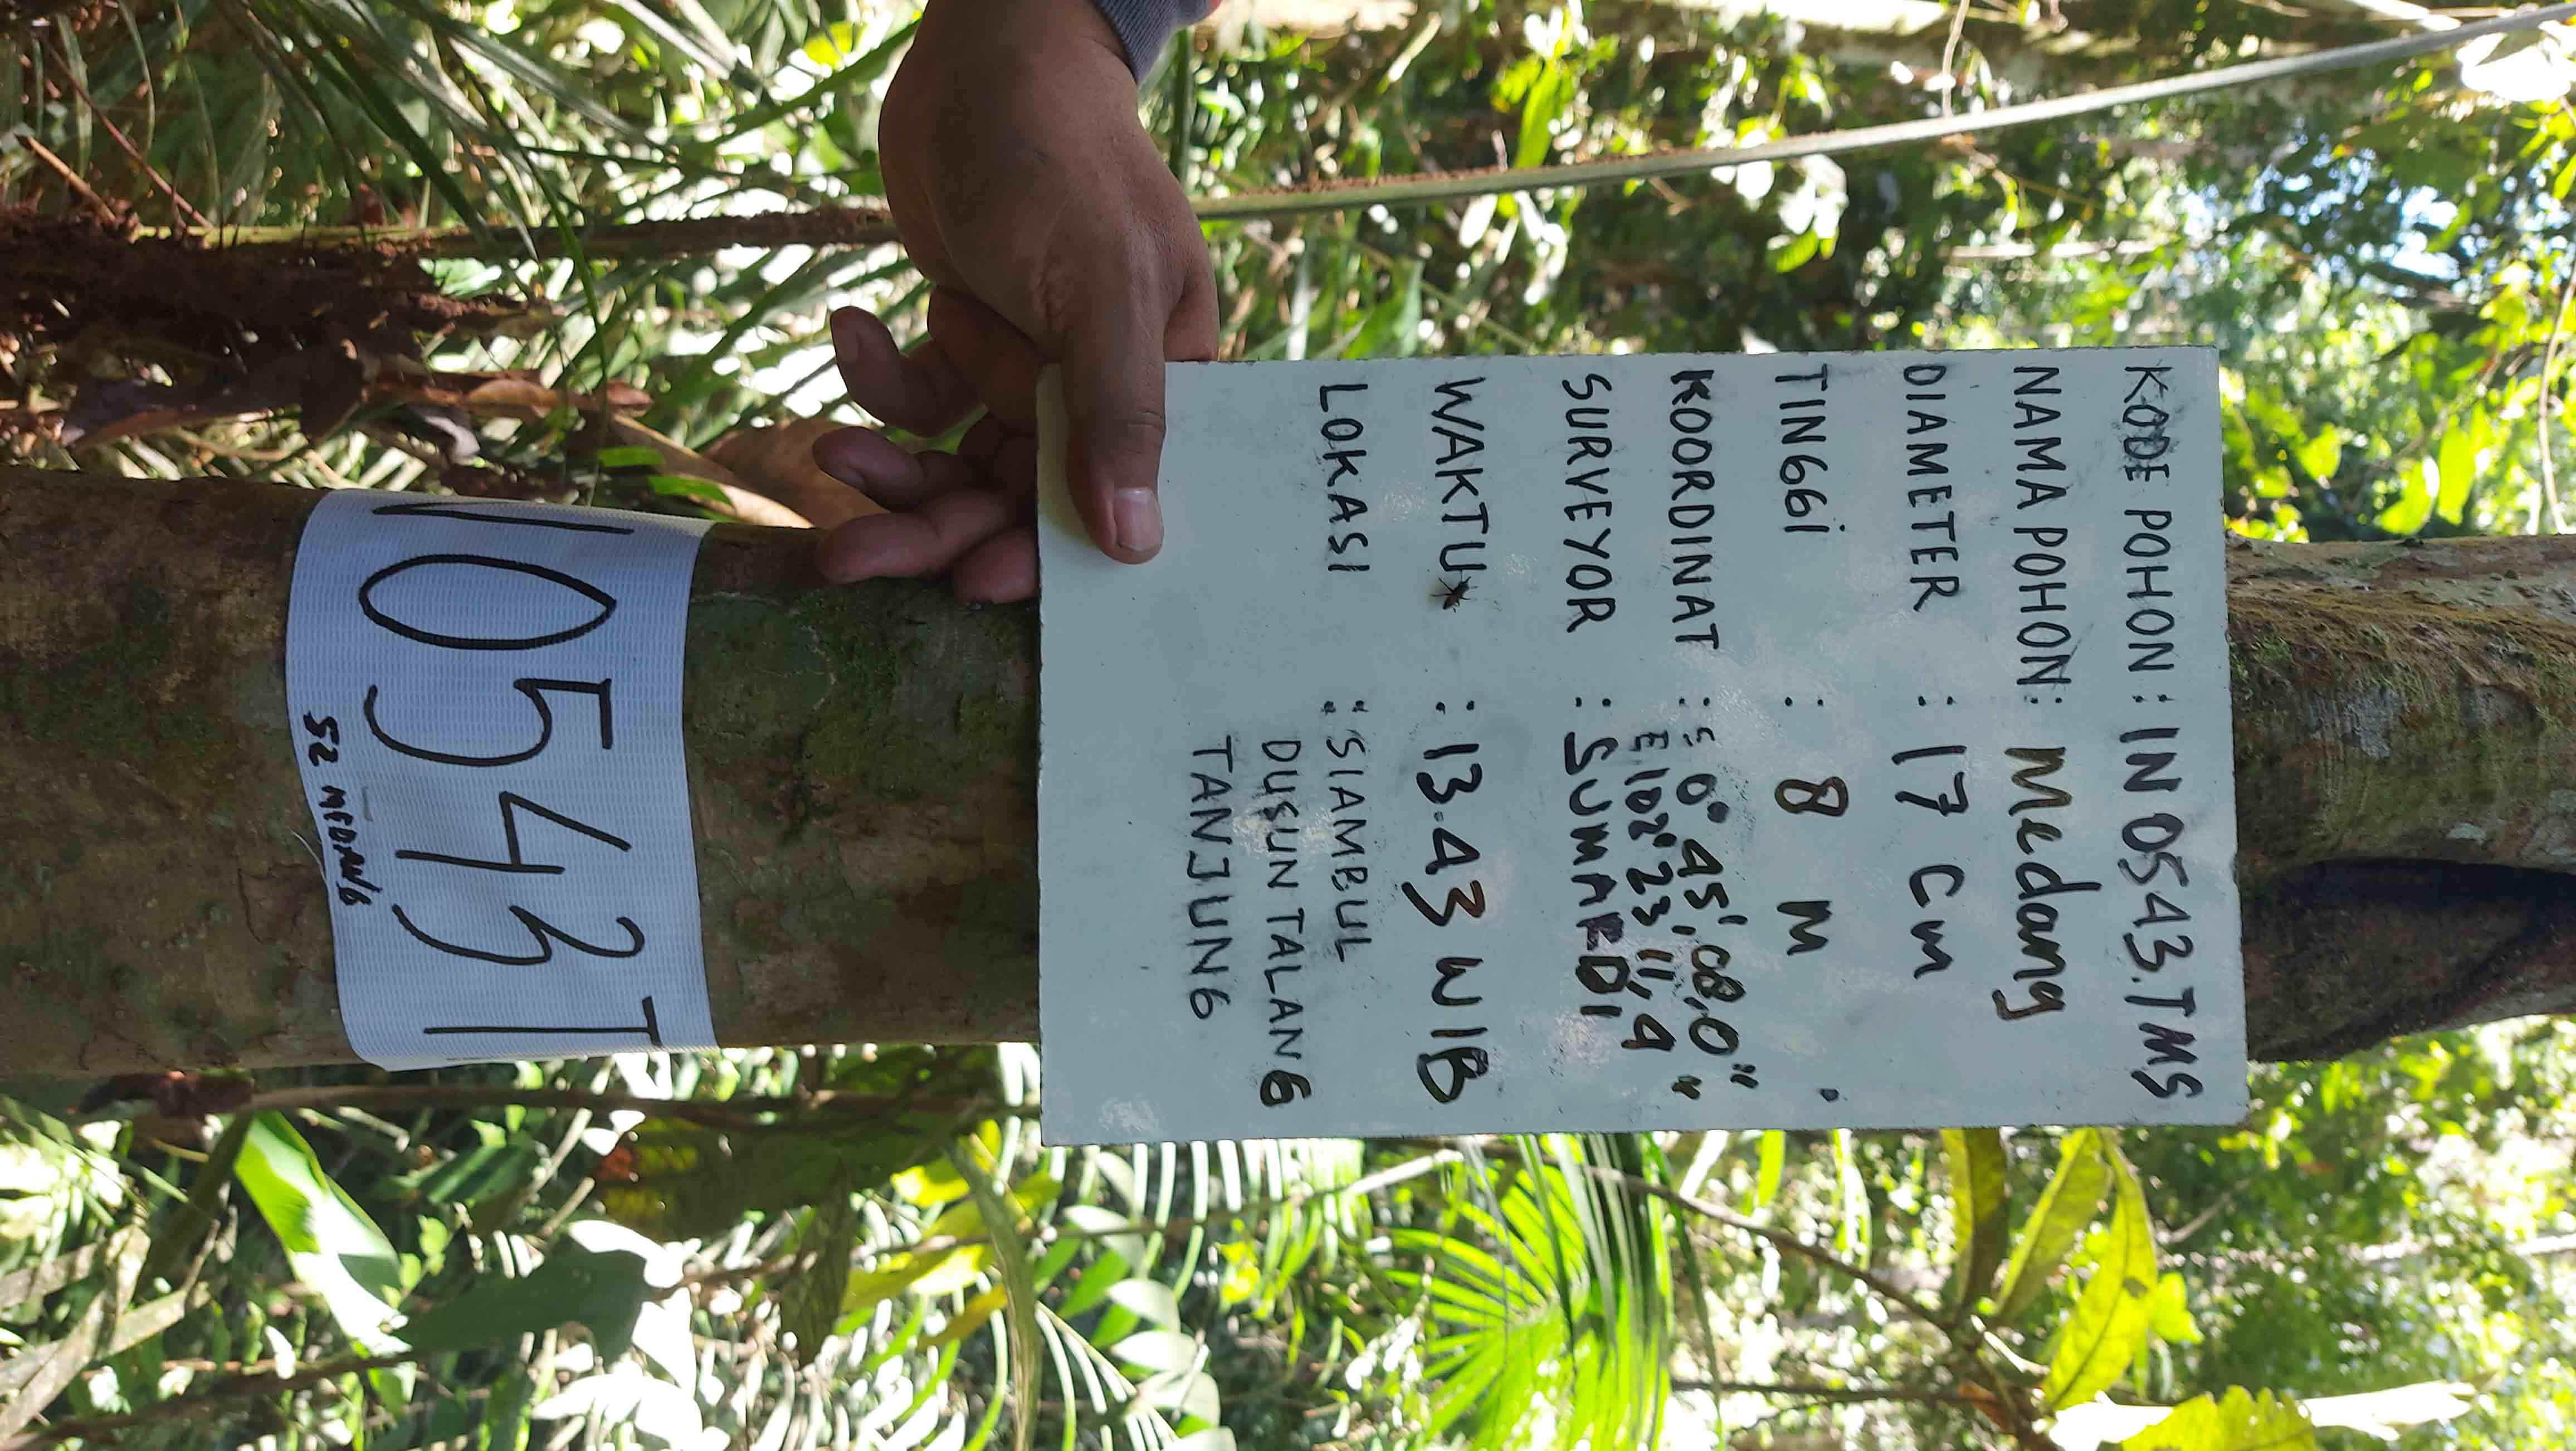 KODE POHON : IN 0543.TMS
NAMA POHON : Medang
DIAMETER : 17 Cm
TINGGi : 8 M
KOORDINAT : S 0° 45', 08,0"
E 102° 23' 11,9"
SURVEYOR : SUMARDI
WAKTU : 13.43 WIB
LOKASI : SIAMBUL
DUSUN TALANG
TANJUNG
0543 T
52 MEDANG